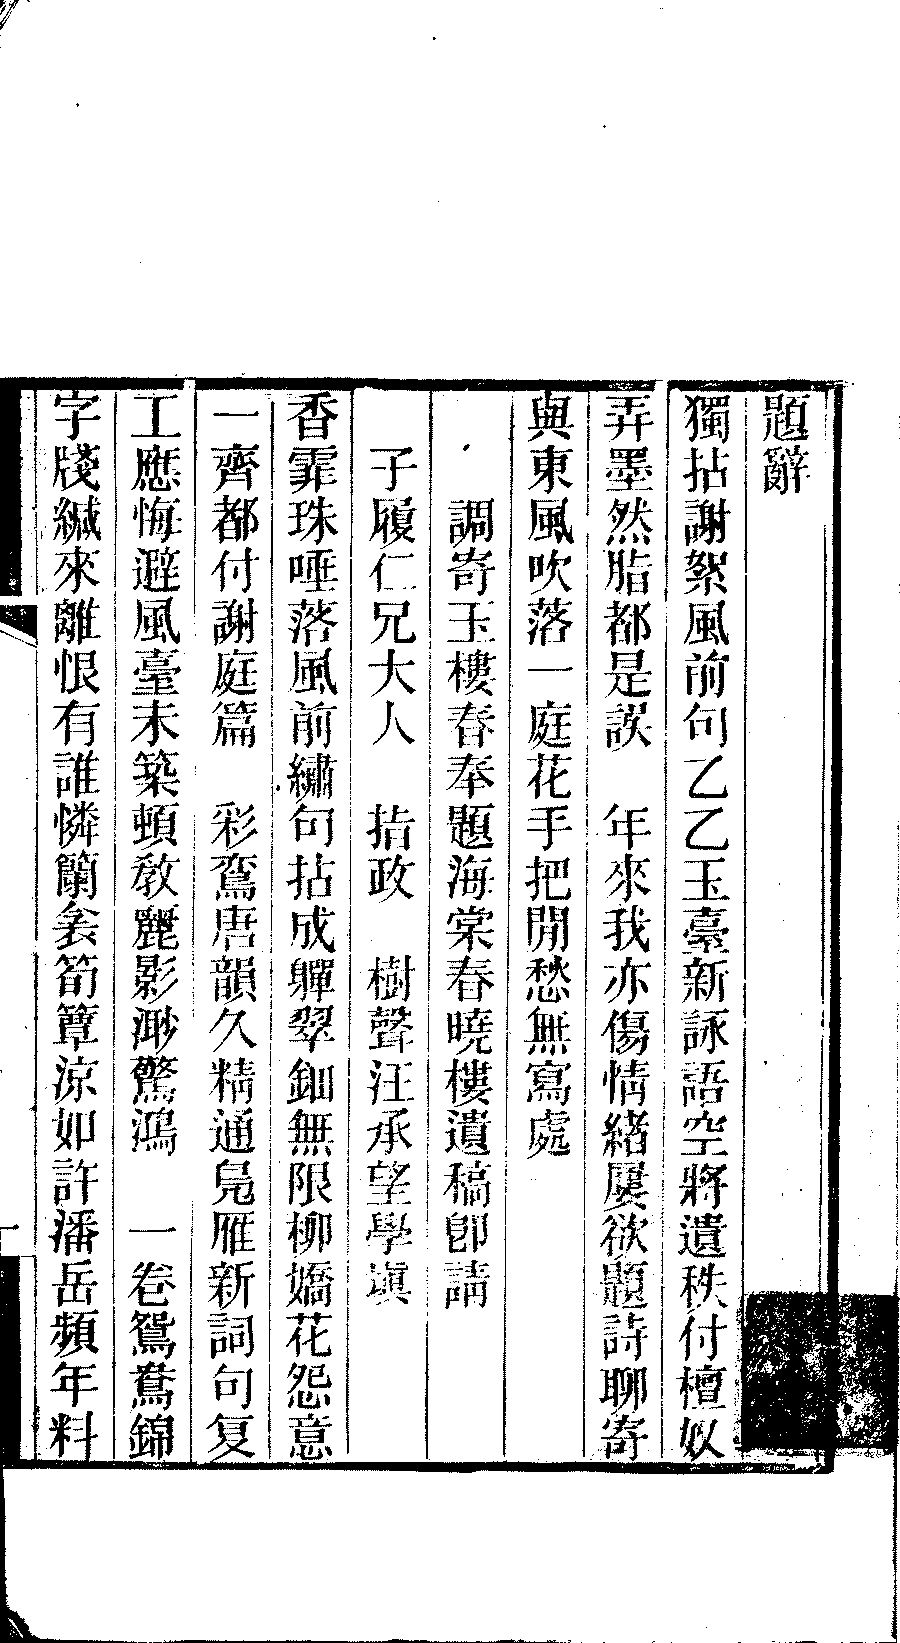 題辭
獨拈謝絮風前句乙乙玉臺新詠語空將遺秩付檀奴
弄墨然脂都是誤　年來我亦傷情緒屢欲題詩聊寄
與東風吹落一庭花手把閒愁無寫處
調寄玉樓春奉題海棠春曉樓遺稿卽請
子履仁兄大人　拮政　樹聲汪承望學塡
香霏珠唾落風前繡句拈成嚲翠鈿無限柳嬌花怨意
一齊都付謝庭篇　彩鸞唐韻久精通鳧雁新詞句复
工應悔避風臺未築頓敎麗影渺驚鴻　一卷鴛鴦錦
字牋緘來離恨有誰憐蘭衾筍簟涼如許潘岳頻年料